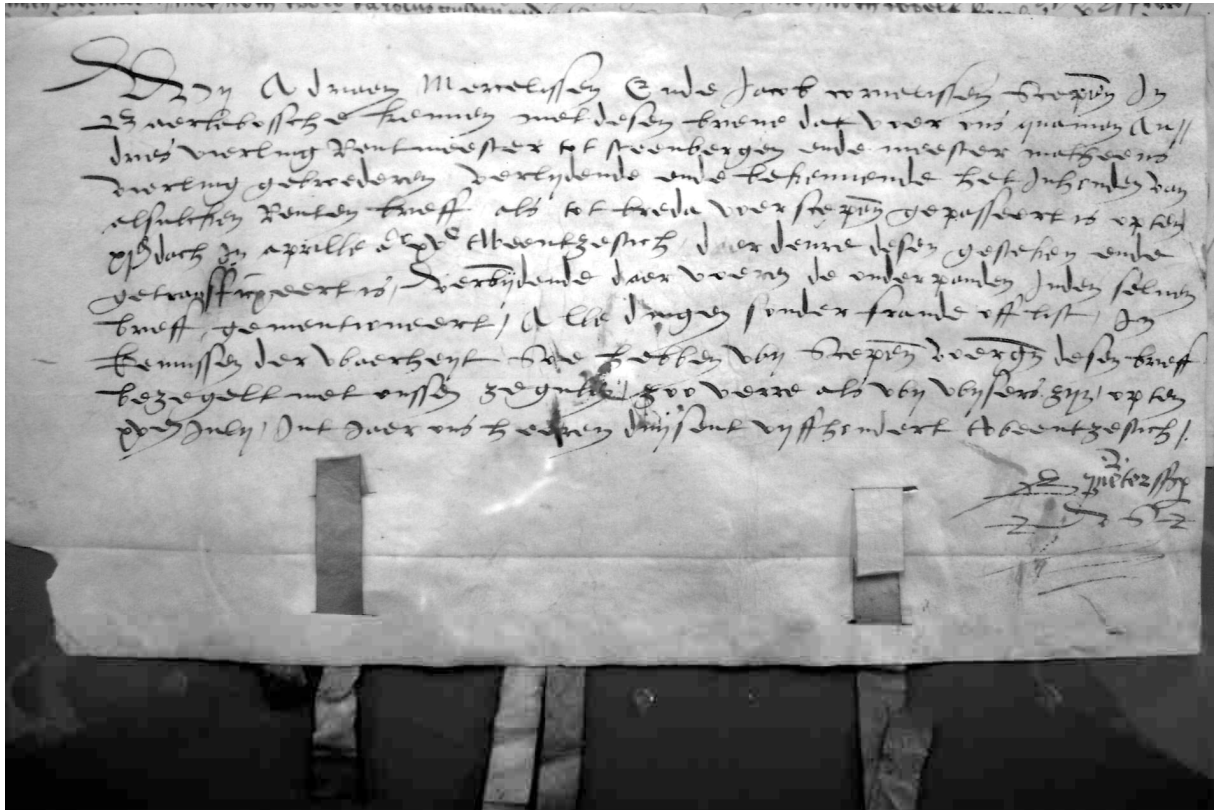 Wij Adriaen Mercelissen Ende Jacob cornelissen Scepen In
Baerlebossche kennen met desen brieve dat voer ons quamen An//
dries vierling Rentmeester tot steenbergen ende meester matheeus
vierling gebroederen verlydende ende bekennende het Inhouden van
elsulcken Renten brieff als tot breda voer scepen gepasseert is op ten
dach In aprille xvc tweentzestich, daer deure desen gesteken ende
getransfixeert is, verbijdende daer voeren de onderpanden Inden selven
brieff gementioneert, Alle dingen sonder fraude off list, In
kennissen der Waerheyt Soe hebben wij Scepen voergen desen brieff
bezegelt met onssen zegulen, zoo verre als wij wijsers zijn, op ten
xven July, Int Jaer ons heeren duijsent vijffhondert tweentzestich,